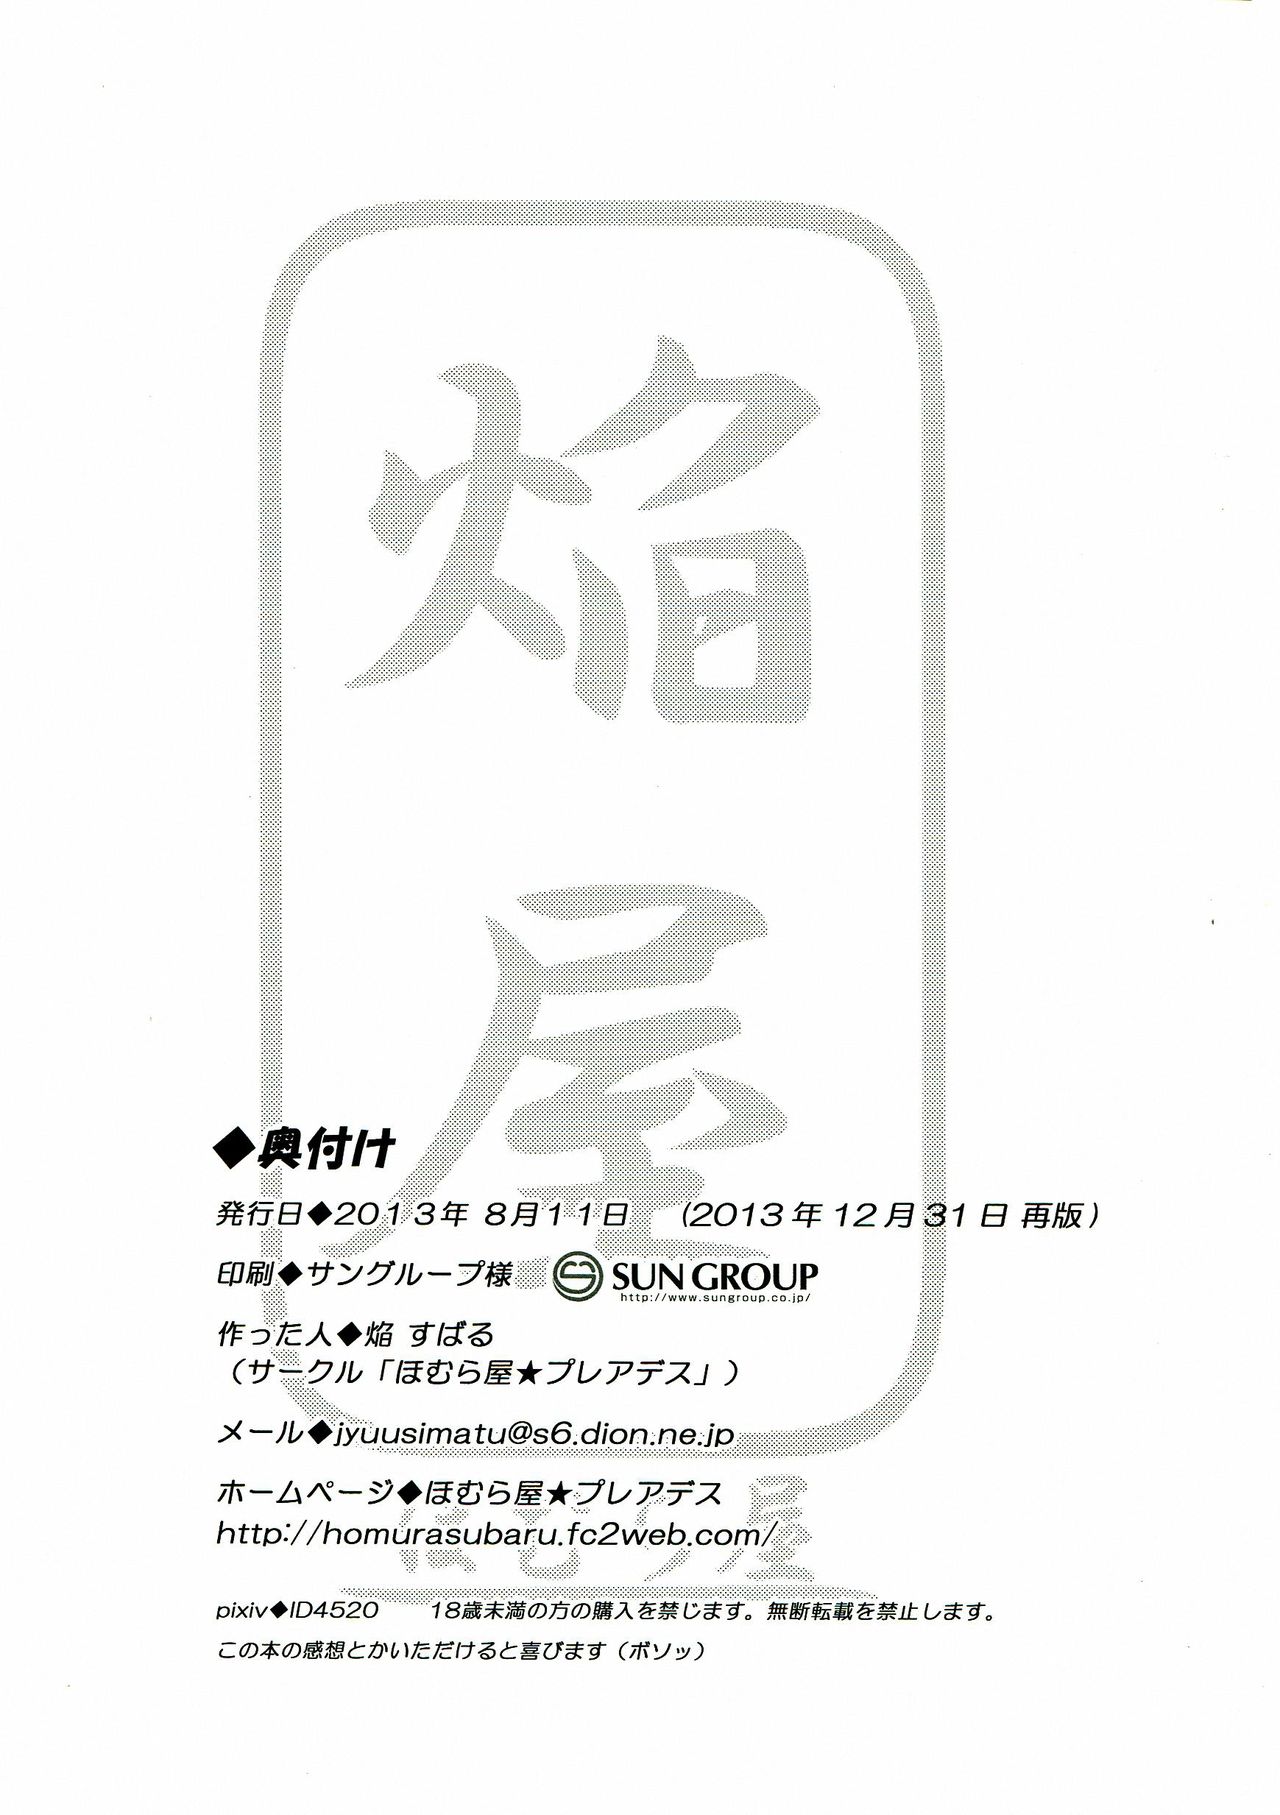 焔
屋
◆奥付け
発行日◆2013年 8月11日 (2013年12月31日 再版)
印刷◆サングループ様 SUN GROUP
http://www.sungroup.co.jp/
作った人◆焔 すばる
(サークル「ほむら屋★プレアデス」)
メール◆jyuusimatu@s6.dion.ne.jp
ホームページ◆ほむら屋★プレアデス
http://homurasubaru.fc2web.com/
ほむら屋
pixiv◆ID4520 18歳未満の方の購入を禁じます。無断転載を禁止します。
この本の感想とかいただけると喜びます(ボソッ)